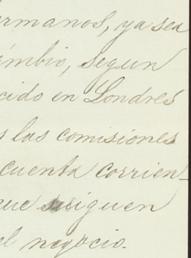 ermanos, ya sea
ambio, segun
cido en Londres
s las comisiones
cuenta corrien-
que siguen
el negocio.